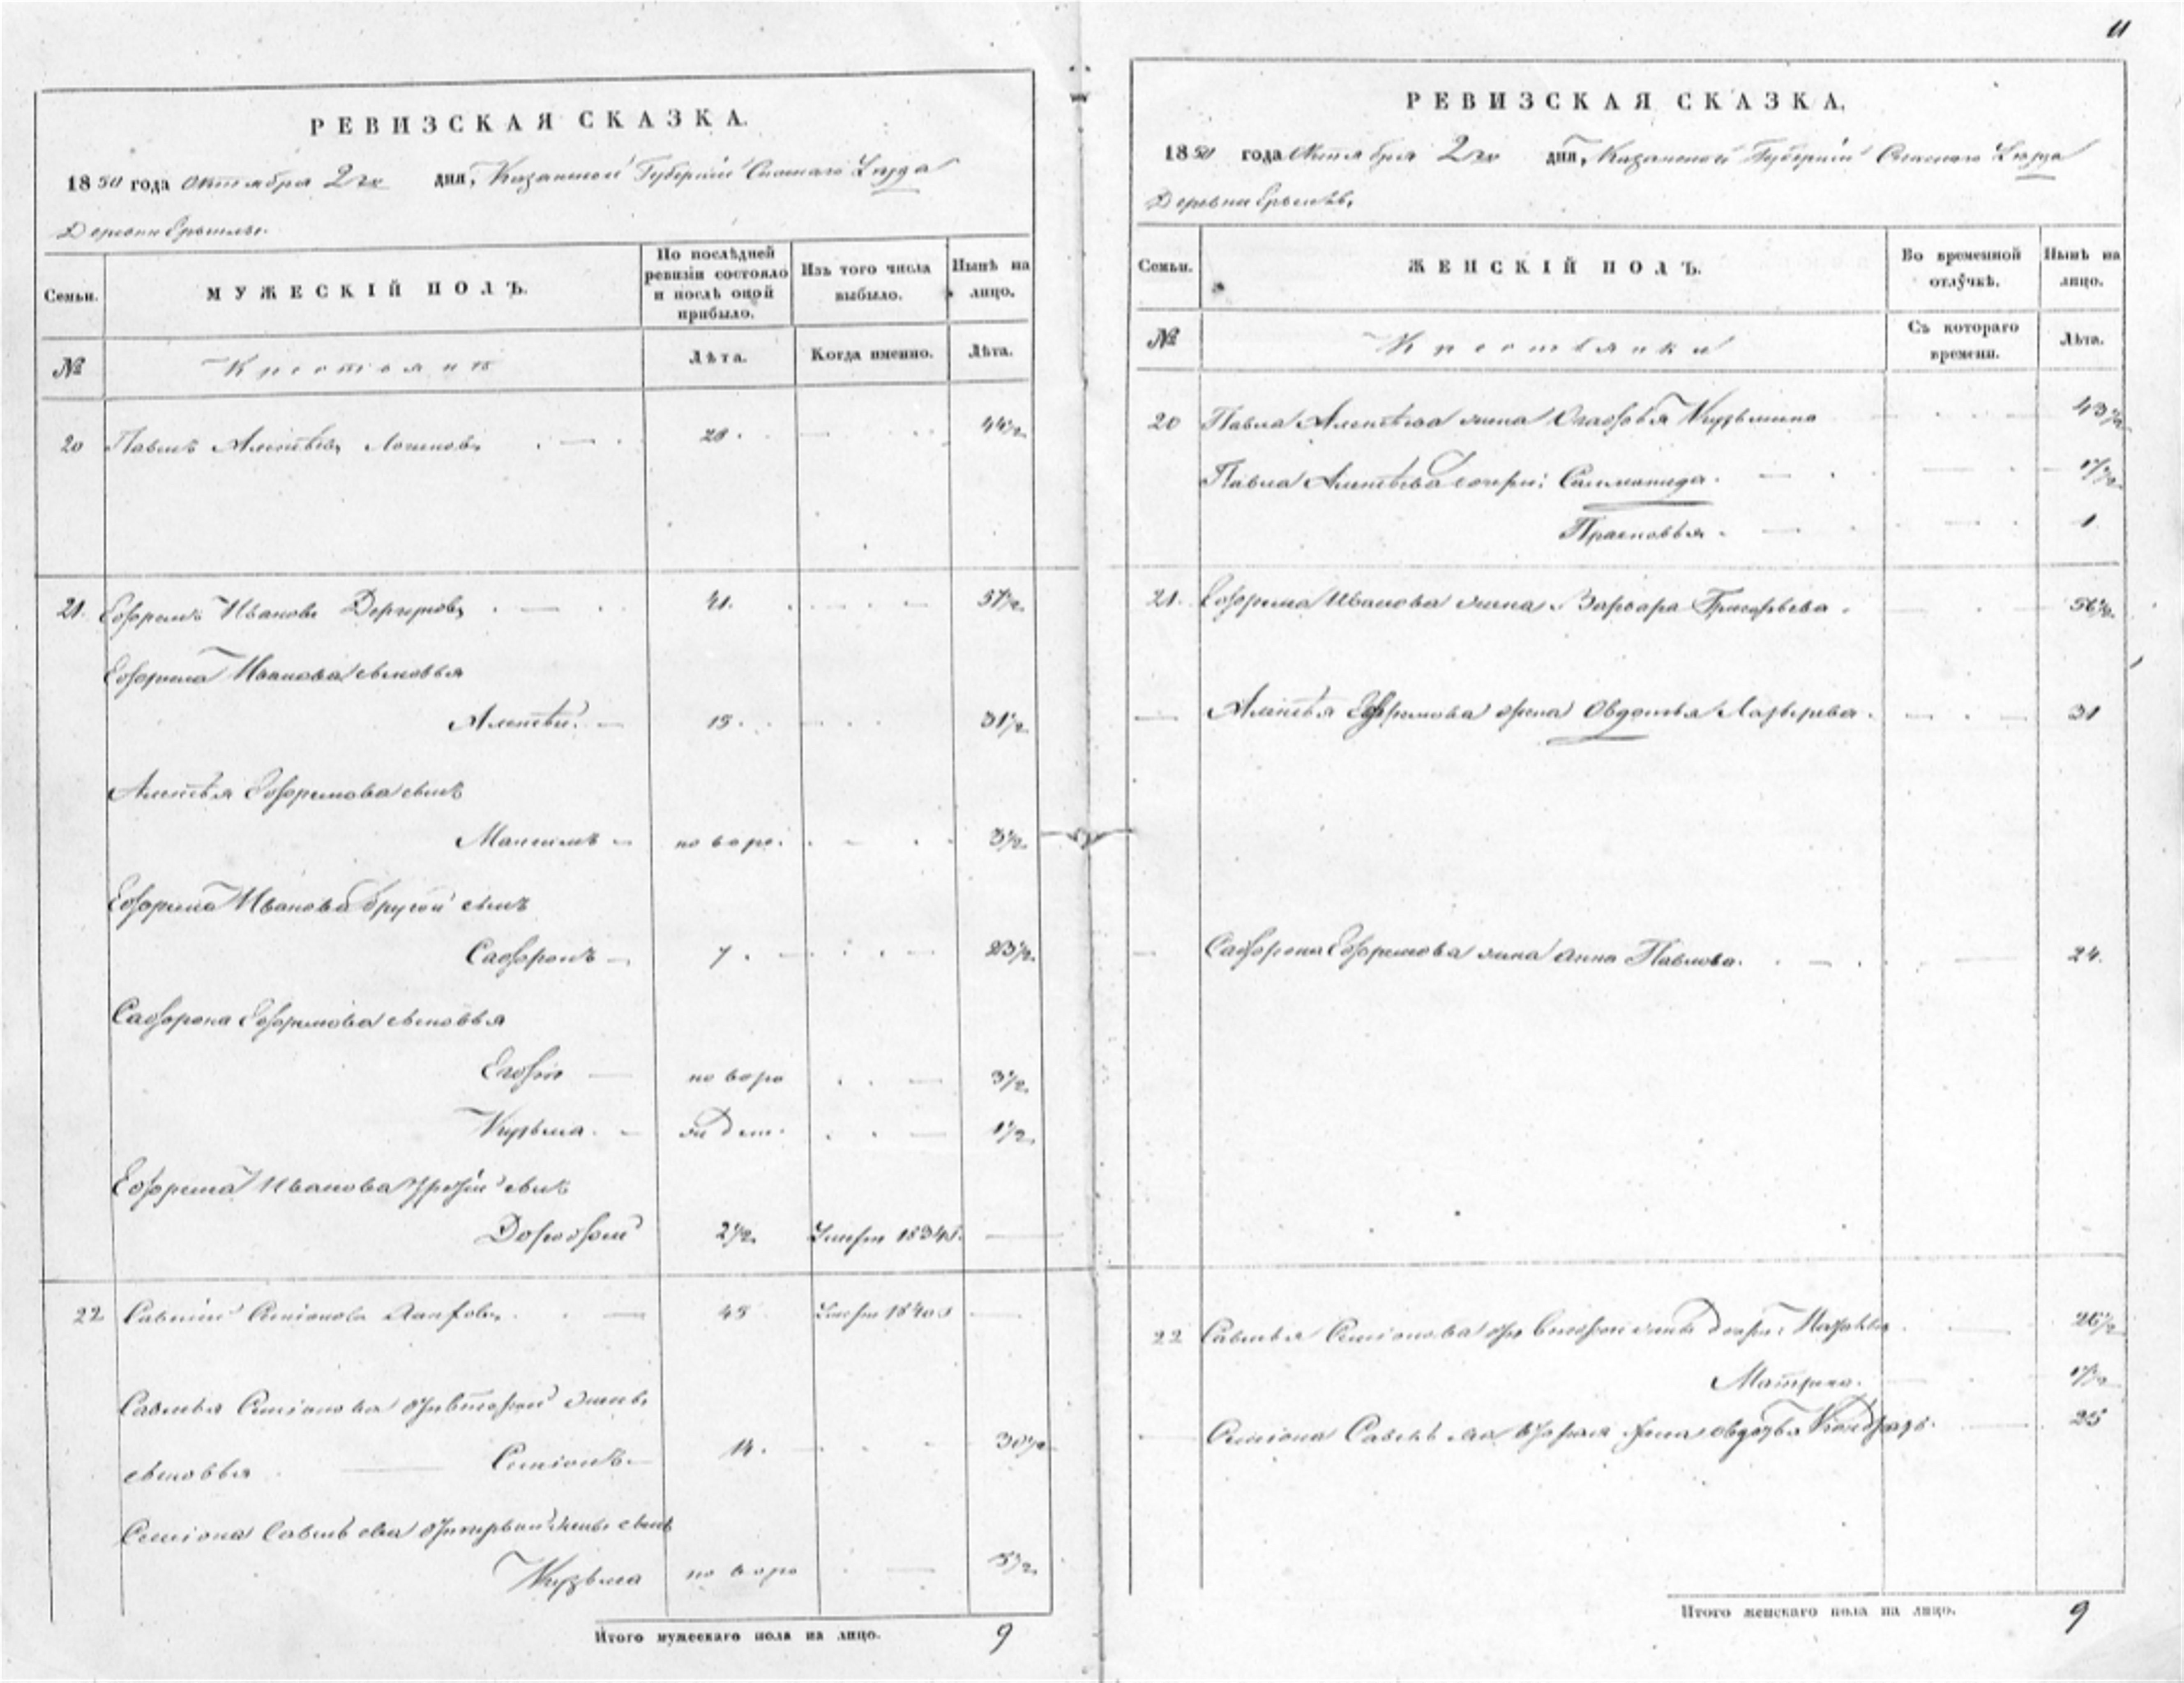 11
РЕВИЗСКАЯ СКАЗКА.
1850 года Октября 2го дня, Казанской Губернии Спаского Уезда
Деревни
Семьи.
МУЖЕСКІЙ ПОЛЪ.
По послѣдней ревизіи состояло и послѣ оной прибыло.
Изъ того числа выбыло.
Нынѣ на лицо.
№
Крестьянъ
Лѣта.
Когда именно.
Лѣта.
20 Павелъ Алексѣевъ 28. 44½
21. Ефремъ Ивановъ 41. 57½
Ефрема Иванова сыновья
Алексѣй 15. 31½
Алексѣя Ефремова сынъ
Максимъ новоро. 3½
Ефрема Иванова другой сынъ
Сафронъ 7. 23½
Сафрона Ефремова сыновья
новоро 3½
Кузьма 1½
Ефрема Иванова третій сынъ
Дорофей 2½ 1834
22 Савелій Семіоновъ 45 1840
Савелья Семіонова отъ второй жены
сыновья Семіонъ 14. 30½
Семіона Савельева отъ первой жены сынъ
Кузьма новоро 5½
Итого мужескаго пола на лицо. 9
РЕВИЗСКАЯ СКАЗКА.
1850 года Октября 2го дня, Казанской Губерніи Спаского Уезда
Деревни
Семьи.
ЖЕНСКІЙ ПОЛЪ.
Во временной отлучкѣ.
Нынѣ на лицо.
№
Крестьянки
Съ котораго времени.
Лѣта.
20 Павла Алексѣева жена Кузьмина 43½
Павла Алексѣева дочери:
Прасковья 1
21. Ефрема Иванова жена Варвара Григорьева 56½
Алексѣя Ефремова жена Овдотья Лазырева 31
Сафрона Ефремова жена Анна Павлова. 24.
22 Савелья Семіонова отъ второй жены 26½
Матрена. 1½
Семіона Савельева вторая жена Овдотья 25
Итого женскаго пола на лицо. 9